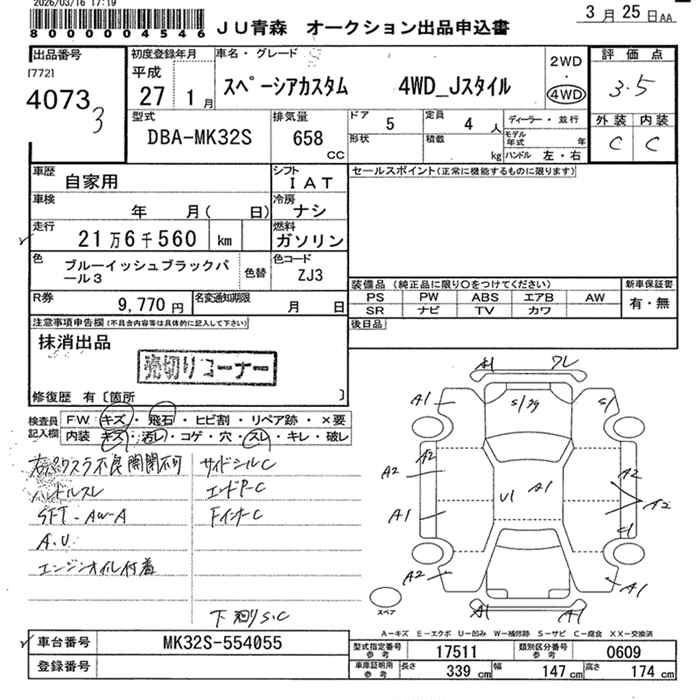 2026/03/16 17:19
8000004546
JU青森 オークション出品申込書
3月25日AA
出品番号
[772]
4073
3
初度登録年月
平成
27 1月
車名・グレード
スペーシアカスタム 4WD_Jスタイル
2WD
・
4WD
評価点
3.5
外装 内装
C C
型式
DBA-MK32S
排気量
658
CC
ドア 5
定員 4人
形状
積載 kg
ディーラー・並行
モデル年式 年
ハンドル 左・右
車歴
自家用
シフト
IAT
セールスポイント(正常に機能するものに限ります)
車検
年 月( 日)
冷房
ナシ
走行
21万6千560 km
燃料
ガソリン
色
ブルーイッシュブラックパ
ール3
色替
色コード
ZJ3
装備品 (純正品に限り○をつけてください)
PS PW ABS エアB AW
SR ナビ TV カワ
新車保証書
有・無
R券
9,770円
名変通知期限
月 日
後日品
注意事項申告欄(不具合内容等は具体的に記入して下さい)
抹消出品
売切りコーナー
修復歴 有〔箇所 〕
検査員
記入欄
FW キズ・飛石・ヒビ割・リペア跡・×要
内装 キズ・汚レ・コゲ・穴・スレ・キレ・破レ
サイドシルC
ハンドルスレ
エンドP-C
SFT-AW-A
FインナーC
A.U.
エンジンオイル付着
下廻りS.C
A1
ワレ
A1
A2
A2
A1
A2
U1
A1
A2
A2
A1
A1
A1
スペア
A-キズ E-エクボ U-凹み W-補修跡 S-サビ C-腐食 XX-交換済
車台番号
MK32S-554055
登録番号
型式指定番号
参考
17511
類別区分番号
参考
0609
車庫証明用
参考
長さ 339 cm 幅 147 cm 高さ 174 cm